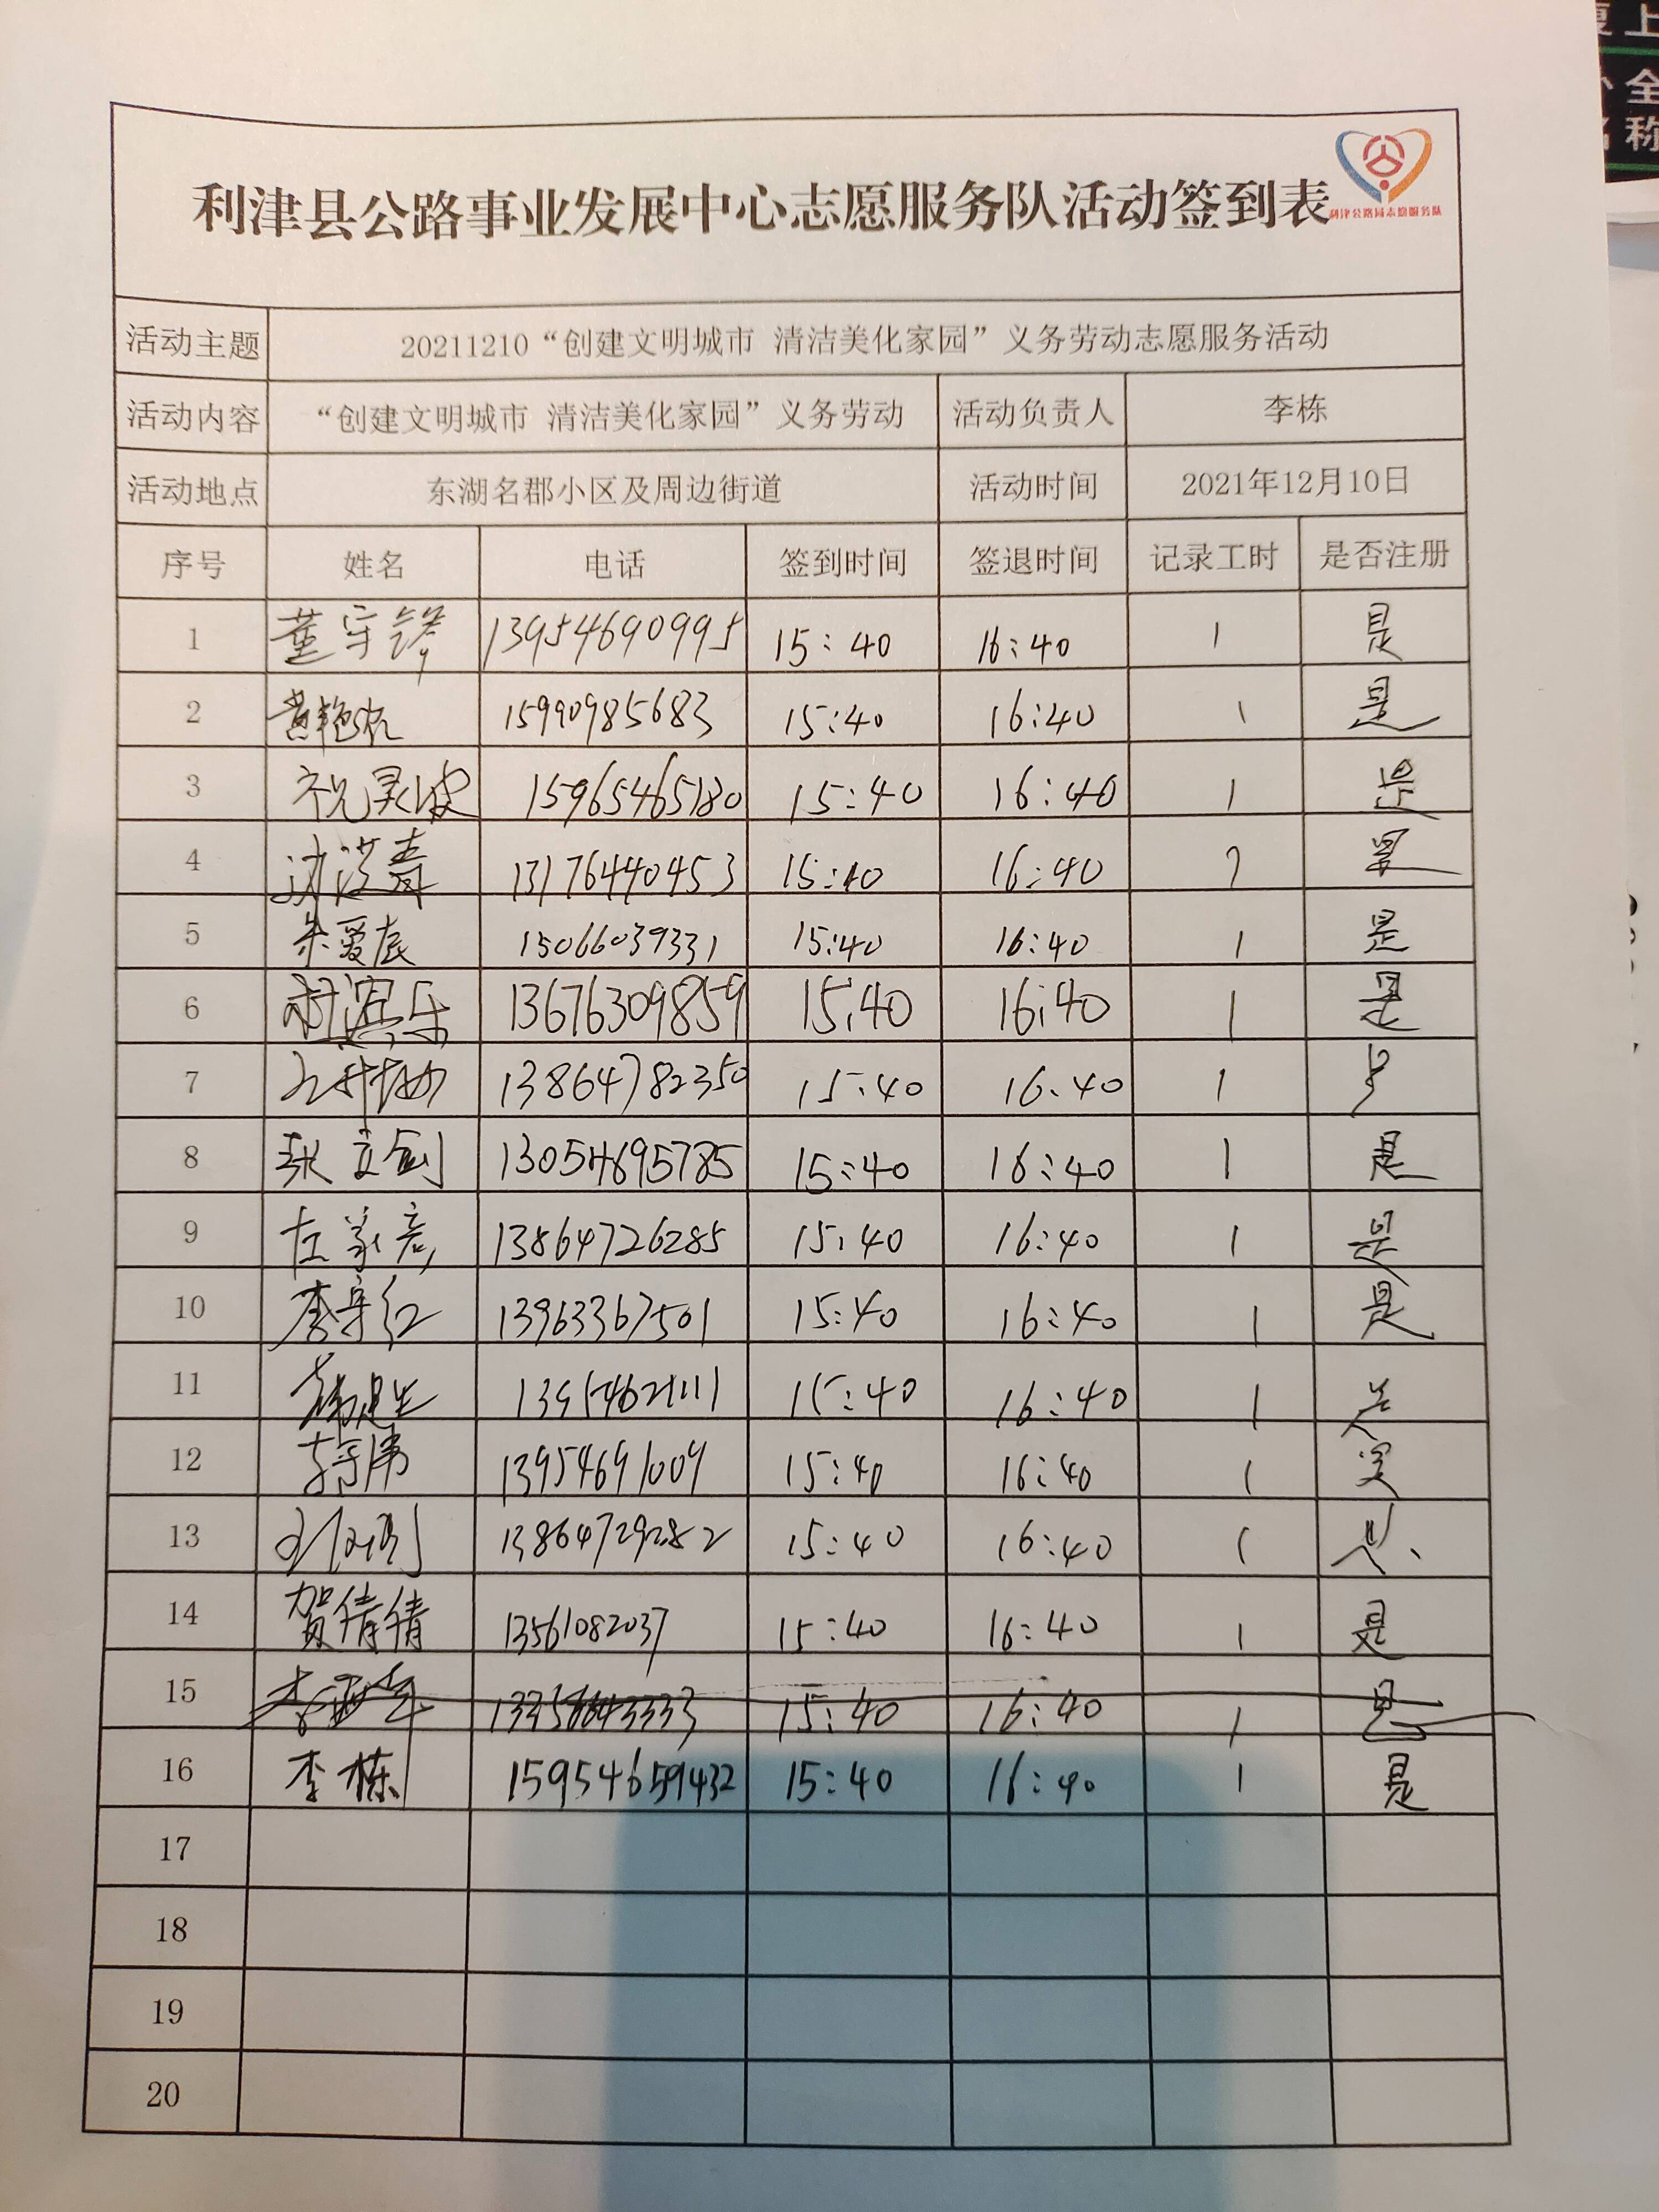 利津县公路事业发展中心志愿服务队活动签到表
利津公路局志愿服务队
活动主题 20211210“创建文明城市 清洁美化家园”义务劳动志愿服务活动
活动内容 “创建文明城市 清洁美化家园”义务劳动 活动负责人 李栋
活动地点 东湖名郡小区及周边街道 活动时间 2021年12月10日
序号 姓名 电话 签到时间 签退时间 记录工时 是否注册
1 董守锋 13954690995 15:40 16:40 1 是
2 15990985683 15:40 16:40 1 是
3 祝灵波 15965465180 15:40 16:40 1 是
4 13176440453 15:40 16:40 是
5 15066039331 15:40 16:40 1 是
6 13676309859 15:40 16:40 1 是
7 13864782350 15:40 16:40 1
8 张立剑 13054695785 15:40 16:40 1 是
9 左家亮 13864726285 15:40 16:40 1 是
10 李守红 13963367501 15:40 16:40 1 是
11 13954621111 15:40 16:40 1 是
12 李守伟 13954691009 15:40 16:40 1 是
13 13864729282 15:40 16:40 1 是
14 贺倩倩 13561082037 15:40 16:40 1 是
15 15:40 16:40 1 是
16 李栋 15954659432 15:40 16:40 1 是
17
18
19
20
上
全
称